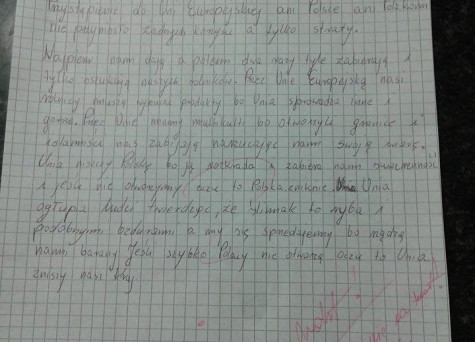 Przystąpienie do Unii Europejskiej ani Polsce ani Polakom
nie przyniosło żadnych korzyści a tylko straty.
Najpierw nam dają a potem dwa razy tyle zabierają i
tylko oszukują naszych rolników. Przez Unię Europejską nasi
rolnicy muszą wyrzucać produkty bo Unia sprowadza inne i
gorsze. Przez Unię mamy multikulti bo otworzyli granice i
islamiści nas zabijają narzucając nam swoją wiarę.
Unia niszczy Polskę bo ją rozkrada i zabiera nam suwerenność
i jeśli nie otworzymy oczu to Polska zniknie. Unia
ogłupia ludzi twierdząc, że ślimak to ryba i
podobnymi bzdurami a my się sprzedajemy bo rządzą
nami barany. Jeśli szybko Polacy nie otworzą oczu to Unia
zniszczy nasz kraj